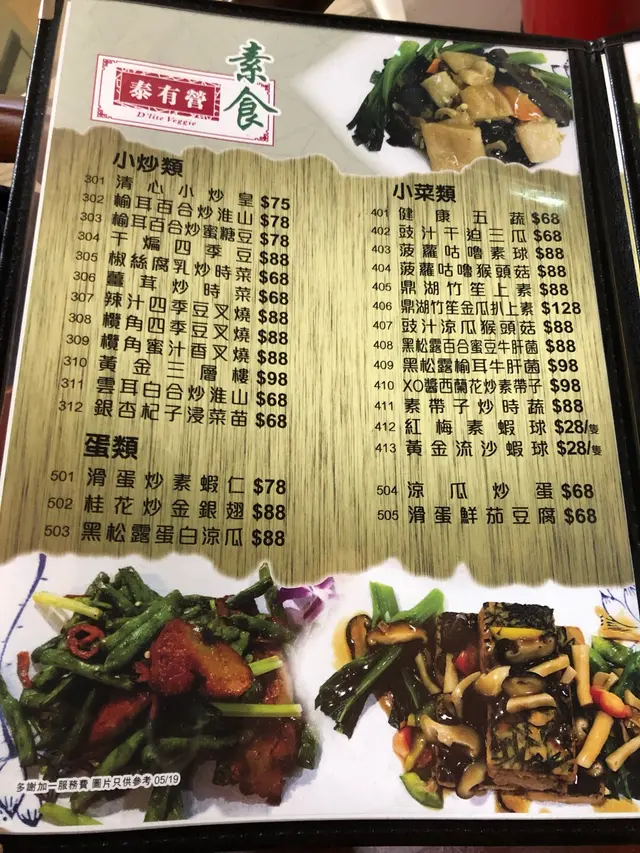 素食
泰有營
D'lite Veggie
小炒類
301 清心小炒皇 $75
302 榆耳百合炒淮山 $78
303 榆耳百合炒蜜糖豆 $78
304 干煸四季豆 $88
305 椒絲腐乳炒時菜 $68
306 薑茸炒時菜 $68
307 辣汁四季豆叉燒 $88
308 欖角四季豆叉燒 $88
309 欖角蜜汁香叉燒 $88
310 黃金三層樓 $98
311 雲耳百合炒淮山 $68
312 銀杏杞子浸菜苗 $68
蛋類
501 滑蛋炒素蝦仁 $78
502 桂花炒金銀翅 $88
503 黑松露蛋白涼瓜 $88
小菜類
401 健康五蔬 $68
402 豉汁干迫三瓜 $68
403 菠蘿咕嚕素球 $88
404 菠蘿咕嚕猴頭菇 $88
405 鼎湖竹笙上素 $88
406 鼎湖竹笙金瓜扒上素 $128
407 豉汁涼瓜猴頭菇 $88
408 黑松露百合蜜豆牛肝菌 $88
409 黑松露榆耳牛肝菌 $98
410 XO醬西蘭花炒素帶子 $98
411 素帶子炒時蔬 $88
412 紅梅素蝦球 $28/隻
413 黃金流沙蝦球 $28/隻
504 涼瓜炒蛋 $68
505 滑蛋鮮茄豆腐 $68
多謝加一服務費 圖片只供參考 05/19